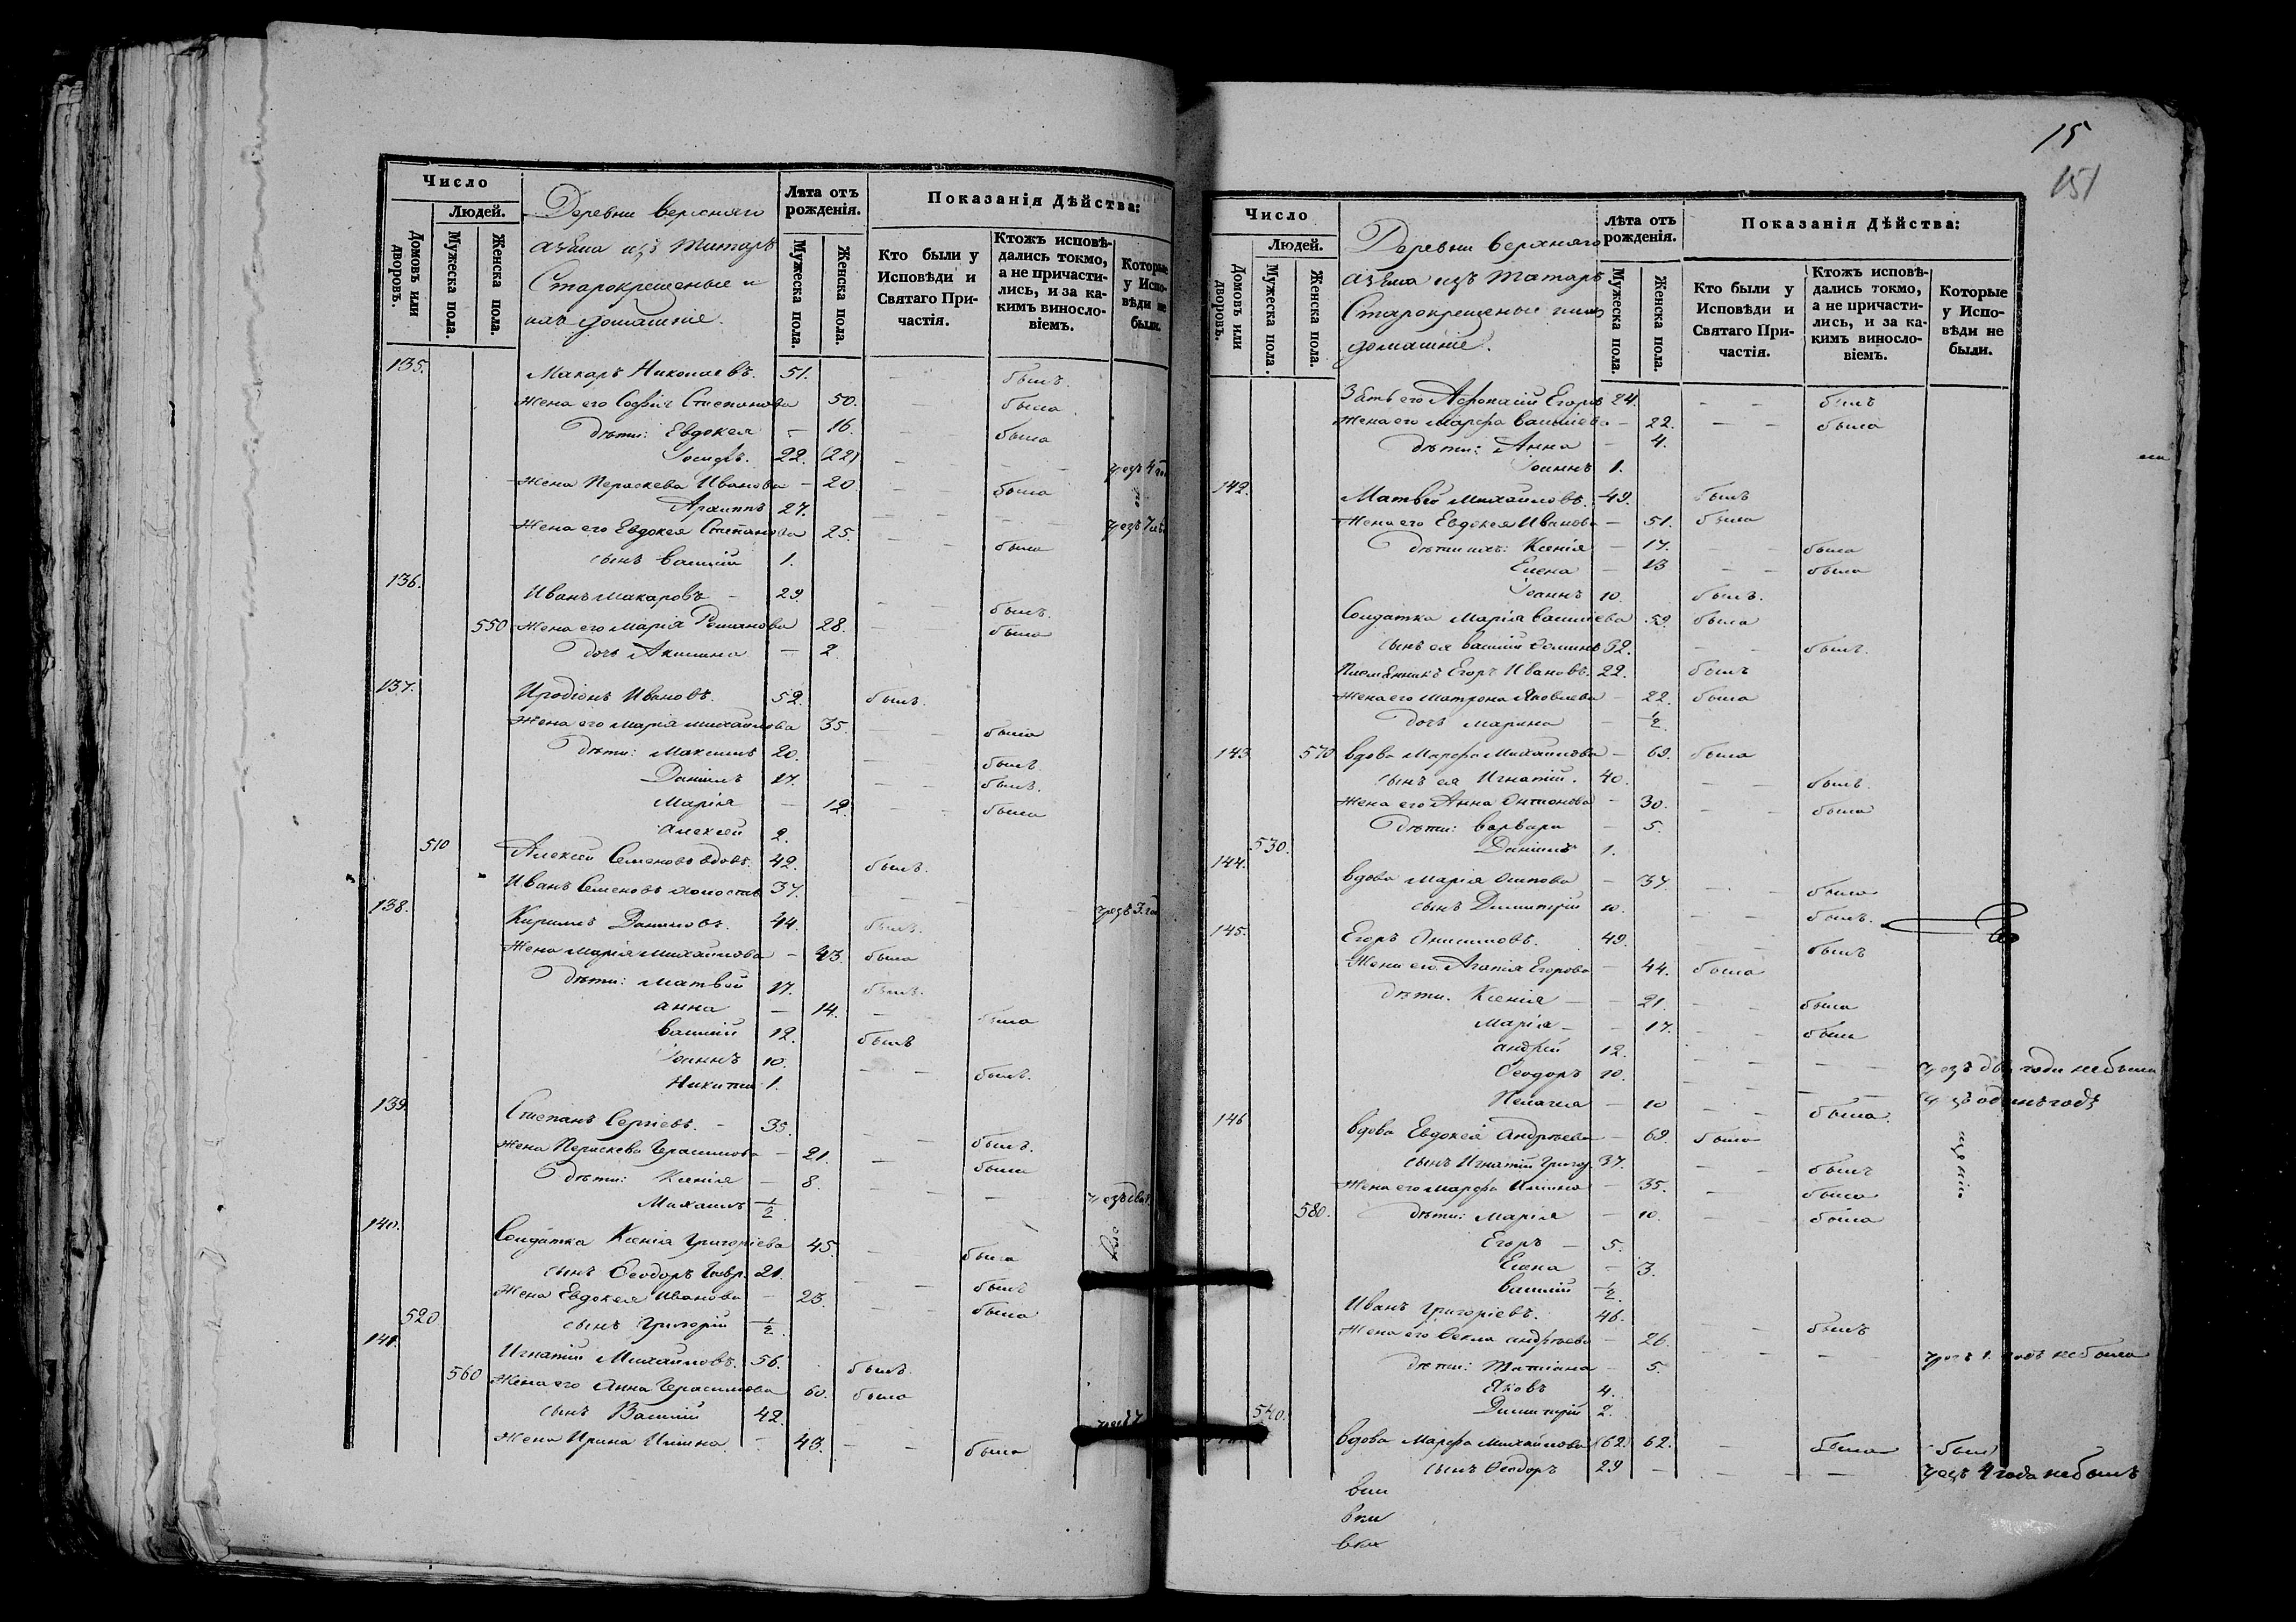 Число
Людей.
Домовъ или дворовъ.
Мужеска пола.
Женска пола.
Деревни верхняго
азяма изъ татаръ
Старокрещеные и
ихъ домашніе.
Лѣта отъ рожденія.
Мужеска пола.
Женска пола.
Показанія Дѣйства:
Кто были у Исповѣди и Святаго Причастія.
Ктожъ исповѣдались токмо, а не причастились, и за какимъ винословіемъ.
Которые у Исповѣди не были.
135. Макаръ Николаевъ. 51. былъ.
Жена его Софія Степанова 50. была
Дѣти: Евдокея – 16. была
Іосифъ. 22. (22)
Жена Параскева Иванова – 20. была
Архиппъ 27.
Жена его Евдокея Степанова 25. была
сынъ Василій 1.
136. Иванъ Макаровъ – 29. былъ.
550 Жена его Марія Романова 28. была
Дочь Акилина – 2.
137. Иродіонъ Ивановъ. 52. былъ.
Жена его Марія Михайлова 35. была
Дѣти: Максимъ 20. былъ
Даніилъ 17. былъ.
Марія – 12. была
Алексей 2.
510 Алексей Семеновъ вдовъ. 42. былъ.
Иванъ Семеновъ холостъ 37.
138. Кирилъ Даниловъ. 44. былъ.
Жена Марія Михайлова – 43. была
Дѣти: Матвей 17. былъ.
Анна – 14. была
Василій 12. былъ
Іоаннъ 10. былъ.
Никита 1.
139. Степанъ Сергіевъ. – 35. былъ.
Жена Параскева Герасимова – 21. была
Дѣти: Ксенія – 8.
Михаилъ ½
140. Солдатка Ксенія Григоріева 45. была
сынъ Ѳеодоръ Гавр. 21. былъ
Жена Евдокея Иванова – 25. была
520 сынъ Григорій ½.
141. Игнатій Михайловъ. 56. былъ.
560 Жена его Анна Герасимова 60. была
сынъ Василій 42.
Жена Ирина Ильина. – 43. была
15
151
Число
Людей.
Домовъ или дворовъ.
Мужеска пола.
Женска пола.
Деревни верхняго
азяма изъ татаръ
Старокрещеные и ихъ
домашніе.
Лѣта отъ рожденія.
Мужеска пола.
Женска пола.
Показанія Дѣйства:
Кто были у Исповѣди и Святаго Причастія.
Ктожъ исповѣдались токмо, а не причастились, и за какимъ винословіемъ.
Которые у Исповѣди не были.
Зять его Афонасій Егоровъ 24. былъ
Жена его Марфа Василіева – 22. была
Дѣти: Анна – 4.
Іоаннъ 1.
142. Матвей Михайловъ. 49. былъ
Жена его Евдокея Иванова – 51. была
Дѣти ихъ: Ксенія – 17. была
Елена – 13 была
Іоаннъ 10. былъ.
Солдатка Марія Василіева 59. была
сынъ ея Василій 32. былъ.
Племянникъ Егоръ Ивановъ. 22. былъ
Жена его Матрона Яковлева – 22. была
дочь Марина – ½
143 570 Вдова Марфа Михайлова – 69. была
сынъ ея Игнатій. 40. былъ.
Жена его Анна Антонова – 30. была
Дѣти: Варвара – 5.
530. Даніилъ 1.
144. Вдова Марія Осипова – 37. была
сынъ Димитрій 10. былъ.
145. Егоръ Анисимовъ. 49. былъ
Жена его Агапія Егорова – 44. была
Дѣти. Ксенія – 21. была
Марія – 17. была
Андрей 12. чрезъ два года не былъ
Ѳеодоръ 10. чрезъ одинъ годъ
Пелагея – 10 была.
146 Вдова Евдокея Андреева – 69. была
сынъ Игнатій Григор. 37. былъ
Жена его Марфа Ильина – 35. была
580. Дѣти: Марія – 10. была
Егоръ – 5.
Елена – 3.
Василій ½.
Иванъ Григоріевъ. 46. былъ
Жена его Ѳекла Андреева – 26. чрезъ 1. годъ не была
Дѣти: Татіана – 5.
Яковъ 4.
540. Димитрій 2.
Вдова Марфа Михайлова (62.) 62. была
сынъ Ѳеодоръ 29 – чрезъ 4 года не былъ